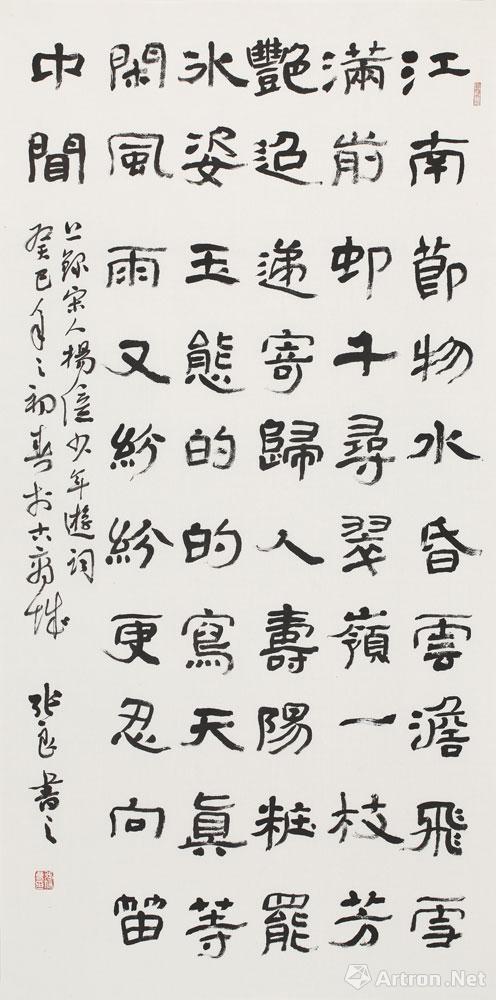 江南節物水昏雲澹飛雪
滿前邨千尋翠嶺一枝芳
豔迢遞寄歸人壽陽粧罷
冰姿玉態的的寫天真等
閑風雨又紛紛更忍向笛
中聞
上録宋人楊億少年遊詞
癸巳年之初春於古城
張良書之
Artron.Net